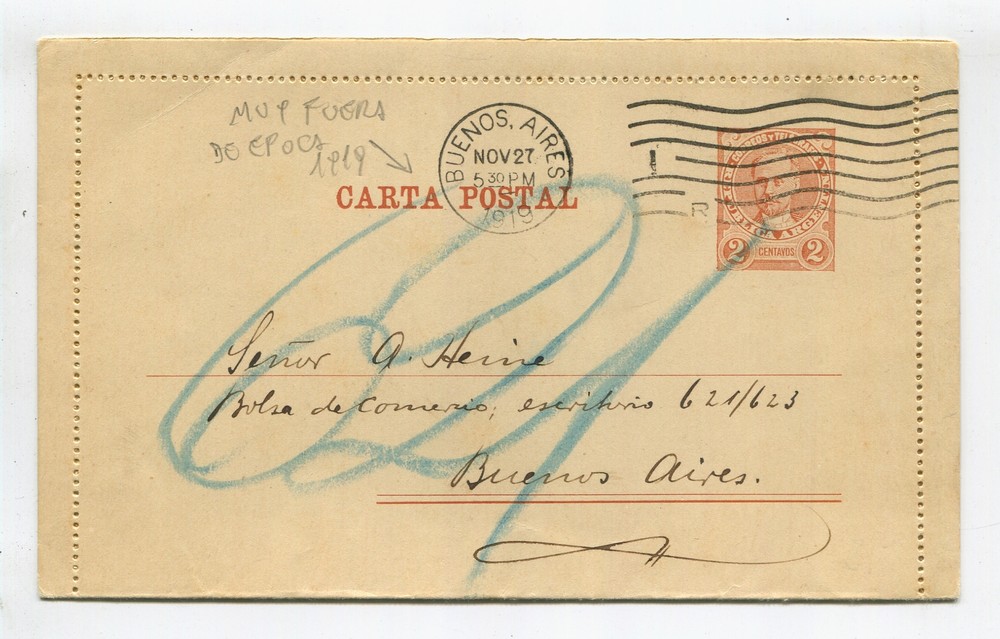 MUY FUERA
DE EPOCA
1919
BUENOS, AIRES
NOV 27
5 30 PM
1919
CARTA POSTAL
2 CENTAVOS 2
Señor A. Heine
Bolsa de Comercio, escritorio 621/623
Buenos Aires.